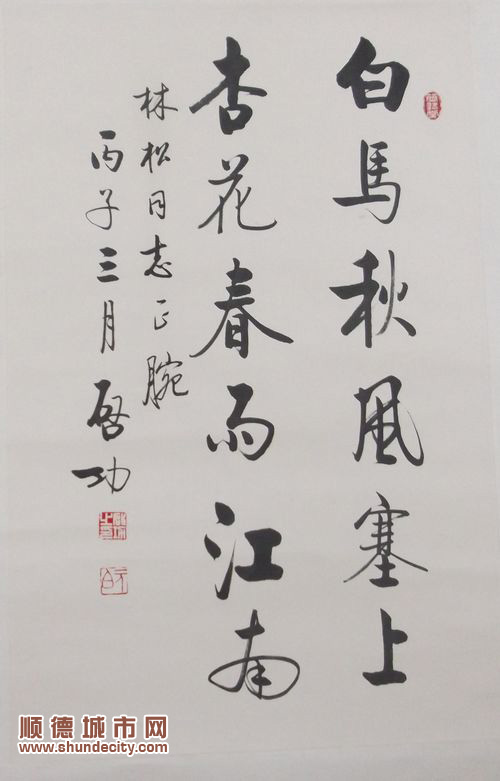 白馬秋風塞上
杏花春雨江南
林松同志正腕
丙子三月 啓功
顺德城市网
www.shundecity.com